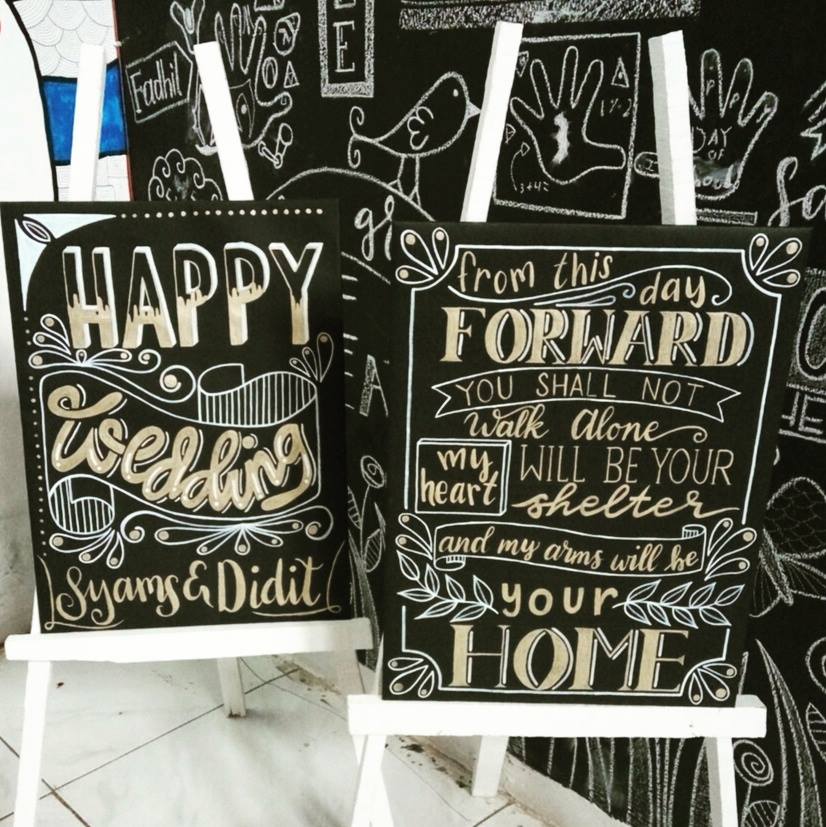 HAPPY
wedding
Syams & Didit
from this
day
FORWARD
YOU SHALL NOT
Walk Alone
my
heart
WILL BE YOUR
shelter
and my arms will be
your
HOME
Fadhil
DAY
OF
3+4=